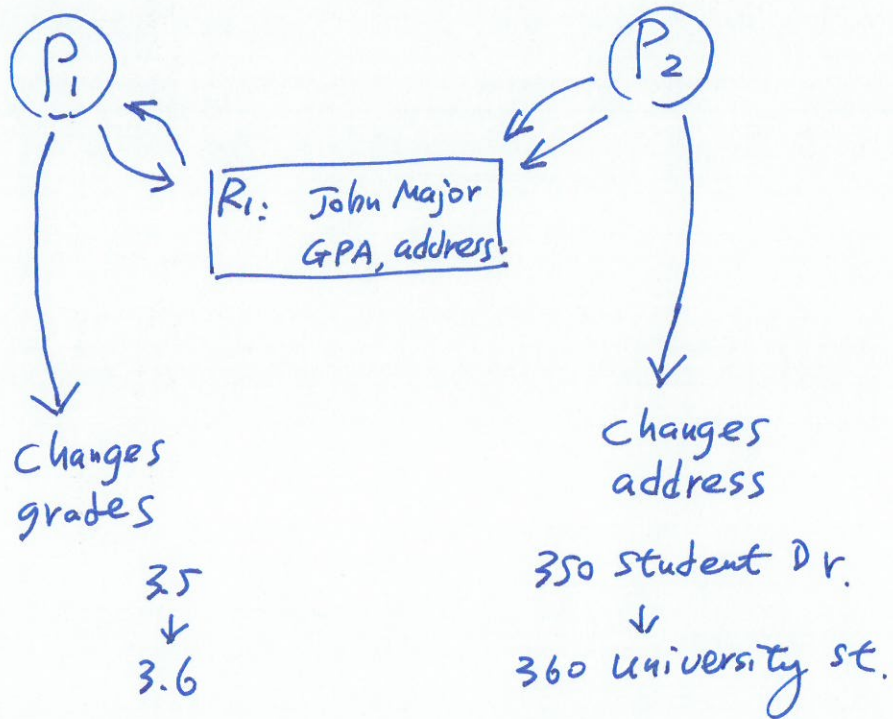 P1
P2
R1: John Major
GPA, address.
Changes
grades
3.5
3.6
Changes
address
350 Student Dr.
360 University st.